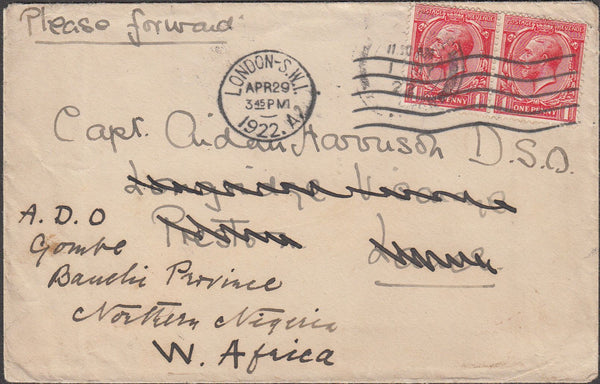 Please forward
POSTAGE REVENUE
POSTAGE REVENUE
ONE PENNY
ONE PENNY
LONDON-S.W.1.
APR 29
3 45 PM
1922. A2
Capt. Aidan Harrison D.S.O.
Longridge Vicarage
Preston Lancs
A. D. O
Gombe
Bauchi Province
Northern Nigeria
W. Africa